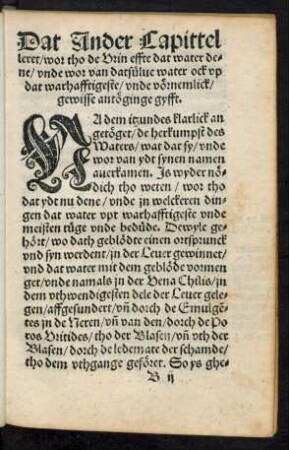 Dat Ander Capittel
leret/wor tho de Vrin effte dat water de-
ne/vnde wor van datsülue water ock vp
dat warhafftigeste/vnde vörnemlick/
gewisse antöginge gyfft.
NA dem itzundes klarlick an
getöget/de herkumpst des
Waters/wat dat sy/vnde
wor van ydt synen namen
auerkamen. Js wyder nö-
dich tho weten/wor tho
dat ydt nu dene/vnde jn welckeren din-
gen dat water vpt warhafftigeste vnde
meisten tüge vnde bedüde. Dewyle ge-
hört/wo dath geblödte einen ortsprunck
vnd syn werdent/jn der Leuer gewinnet/
vnd dat water mit dem geblöde vormen
get/vnde namals jn der Vena Chilis/jn
dem vthwendigesten dele der Leuer gele-
gen/affgesundert/vñ dorch de Emulgē-
tes jn de Neren/vñ van den/dorch de Po
ros Vritides/tho der Blasen/vñ vth der
Blasen/dorch de ledemate der schamde/
tho dem vthgange geföret. So ys ghe-
B ij